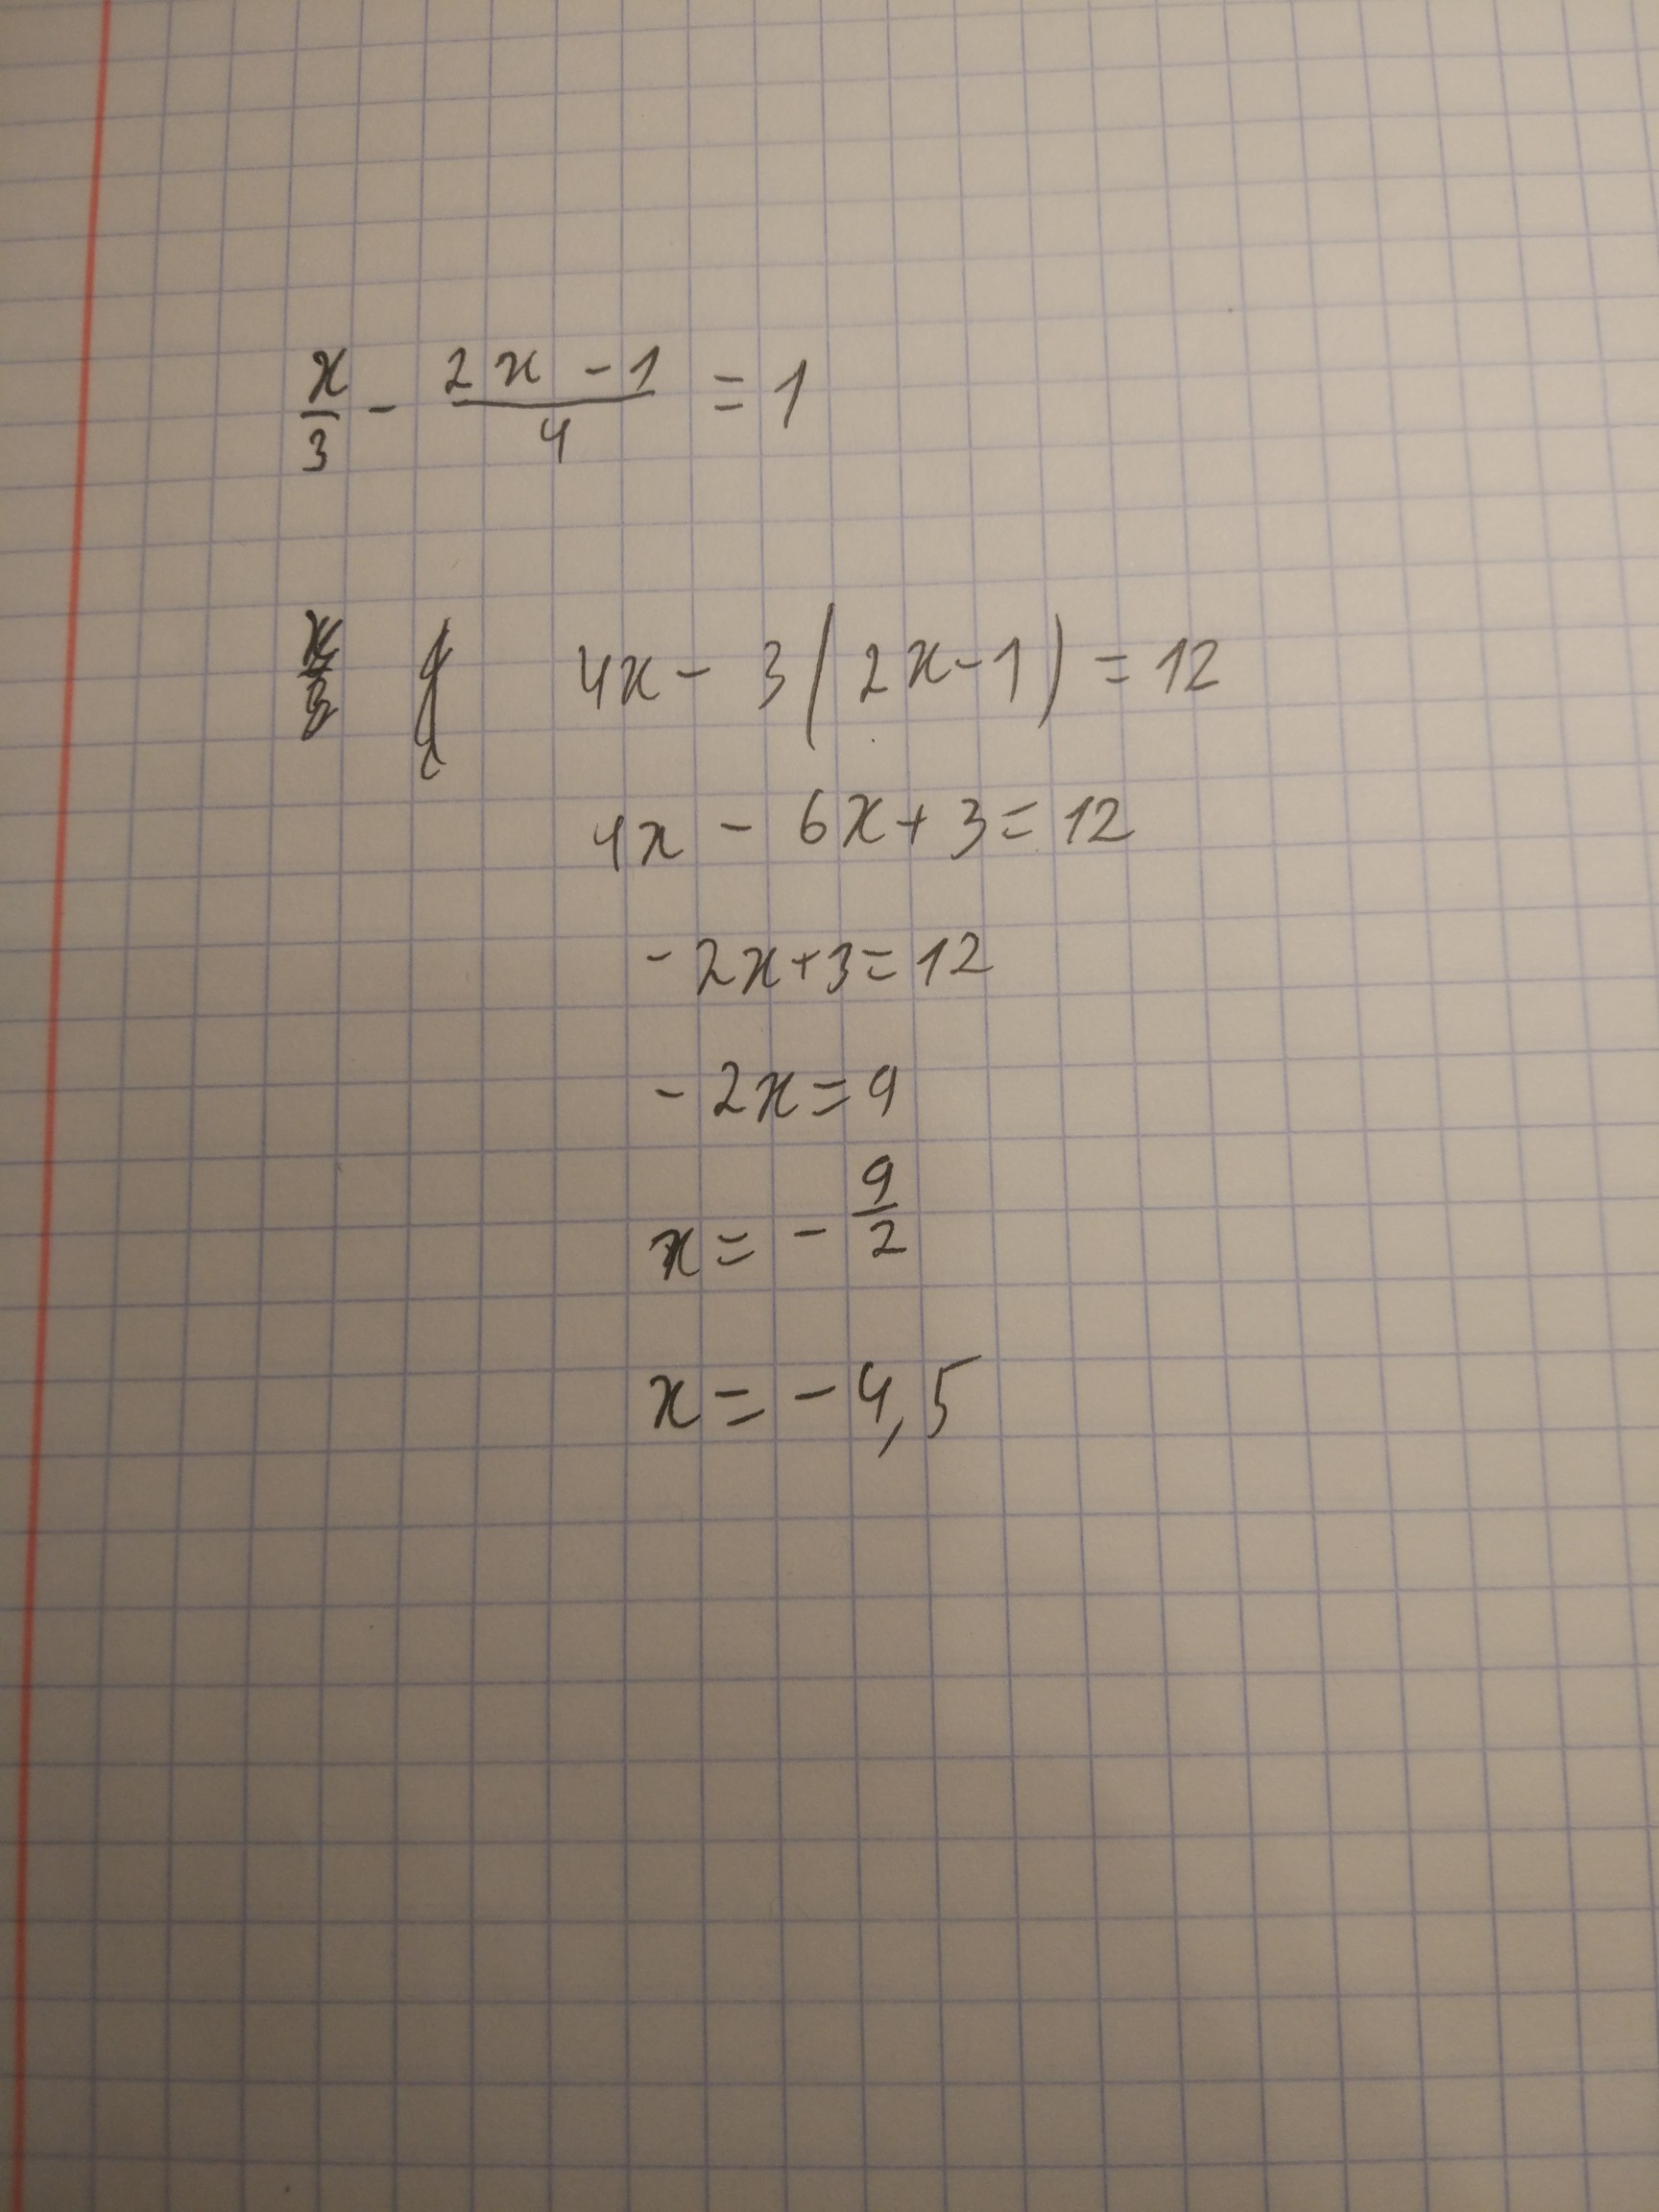 x/3 - (2x - 1)/4 = 1
4x - 3(2x - 1) = 12
4x - 6x + 3 = 12
-2x + 3 = 12
-2x = 9
x = - 9/2
x = - 4,5